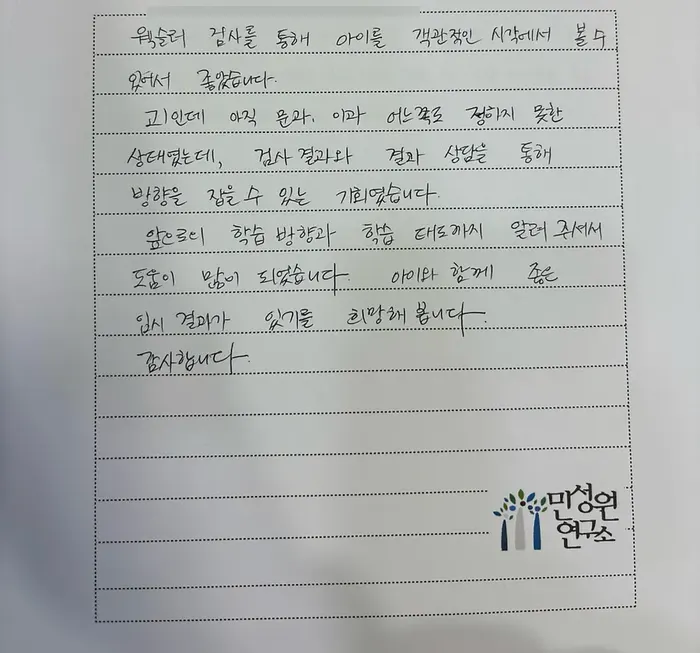 웩슬러 검사를 통해 아이를 객관적인 시각에서 볼 수
있어서 좋았습니다.
고1인데 아직 문과, 이과 어느쪽도 정하지 못한
상태였는데, 검사 결과와 결과 상담을 통해
방향을 잡을 수 있는 기회였습니다.
앞으로의 학습 방향과 학습 태도까지 알려 주셔서
도움이 많이 되었습니다. 아이와 함께 좋은
입시 결과가 있기를 희망해 봅니다.
감사합니다.
민성원
연구소